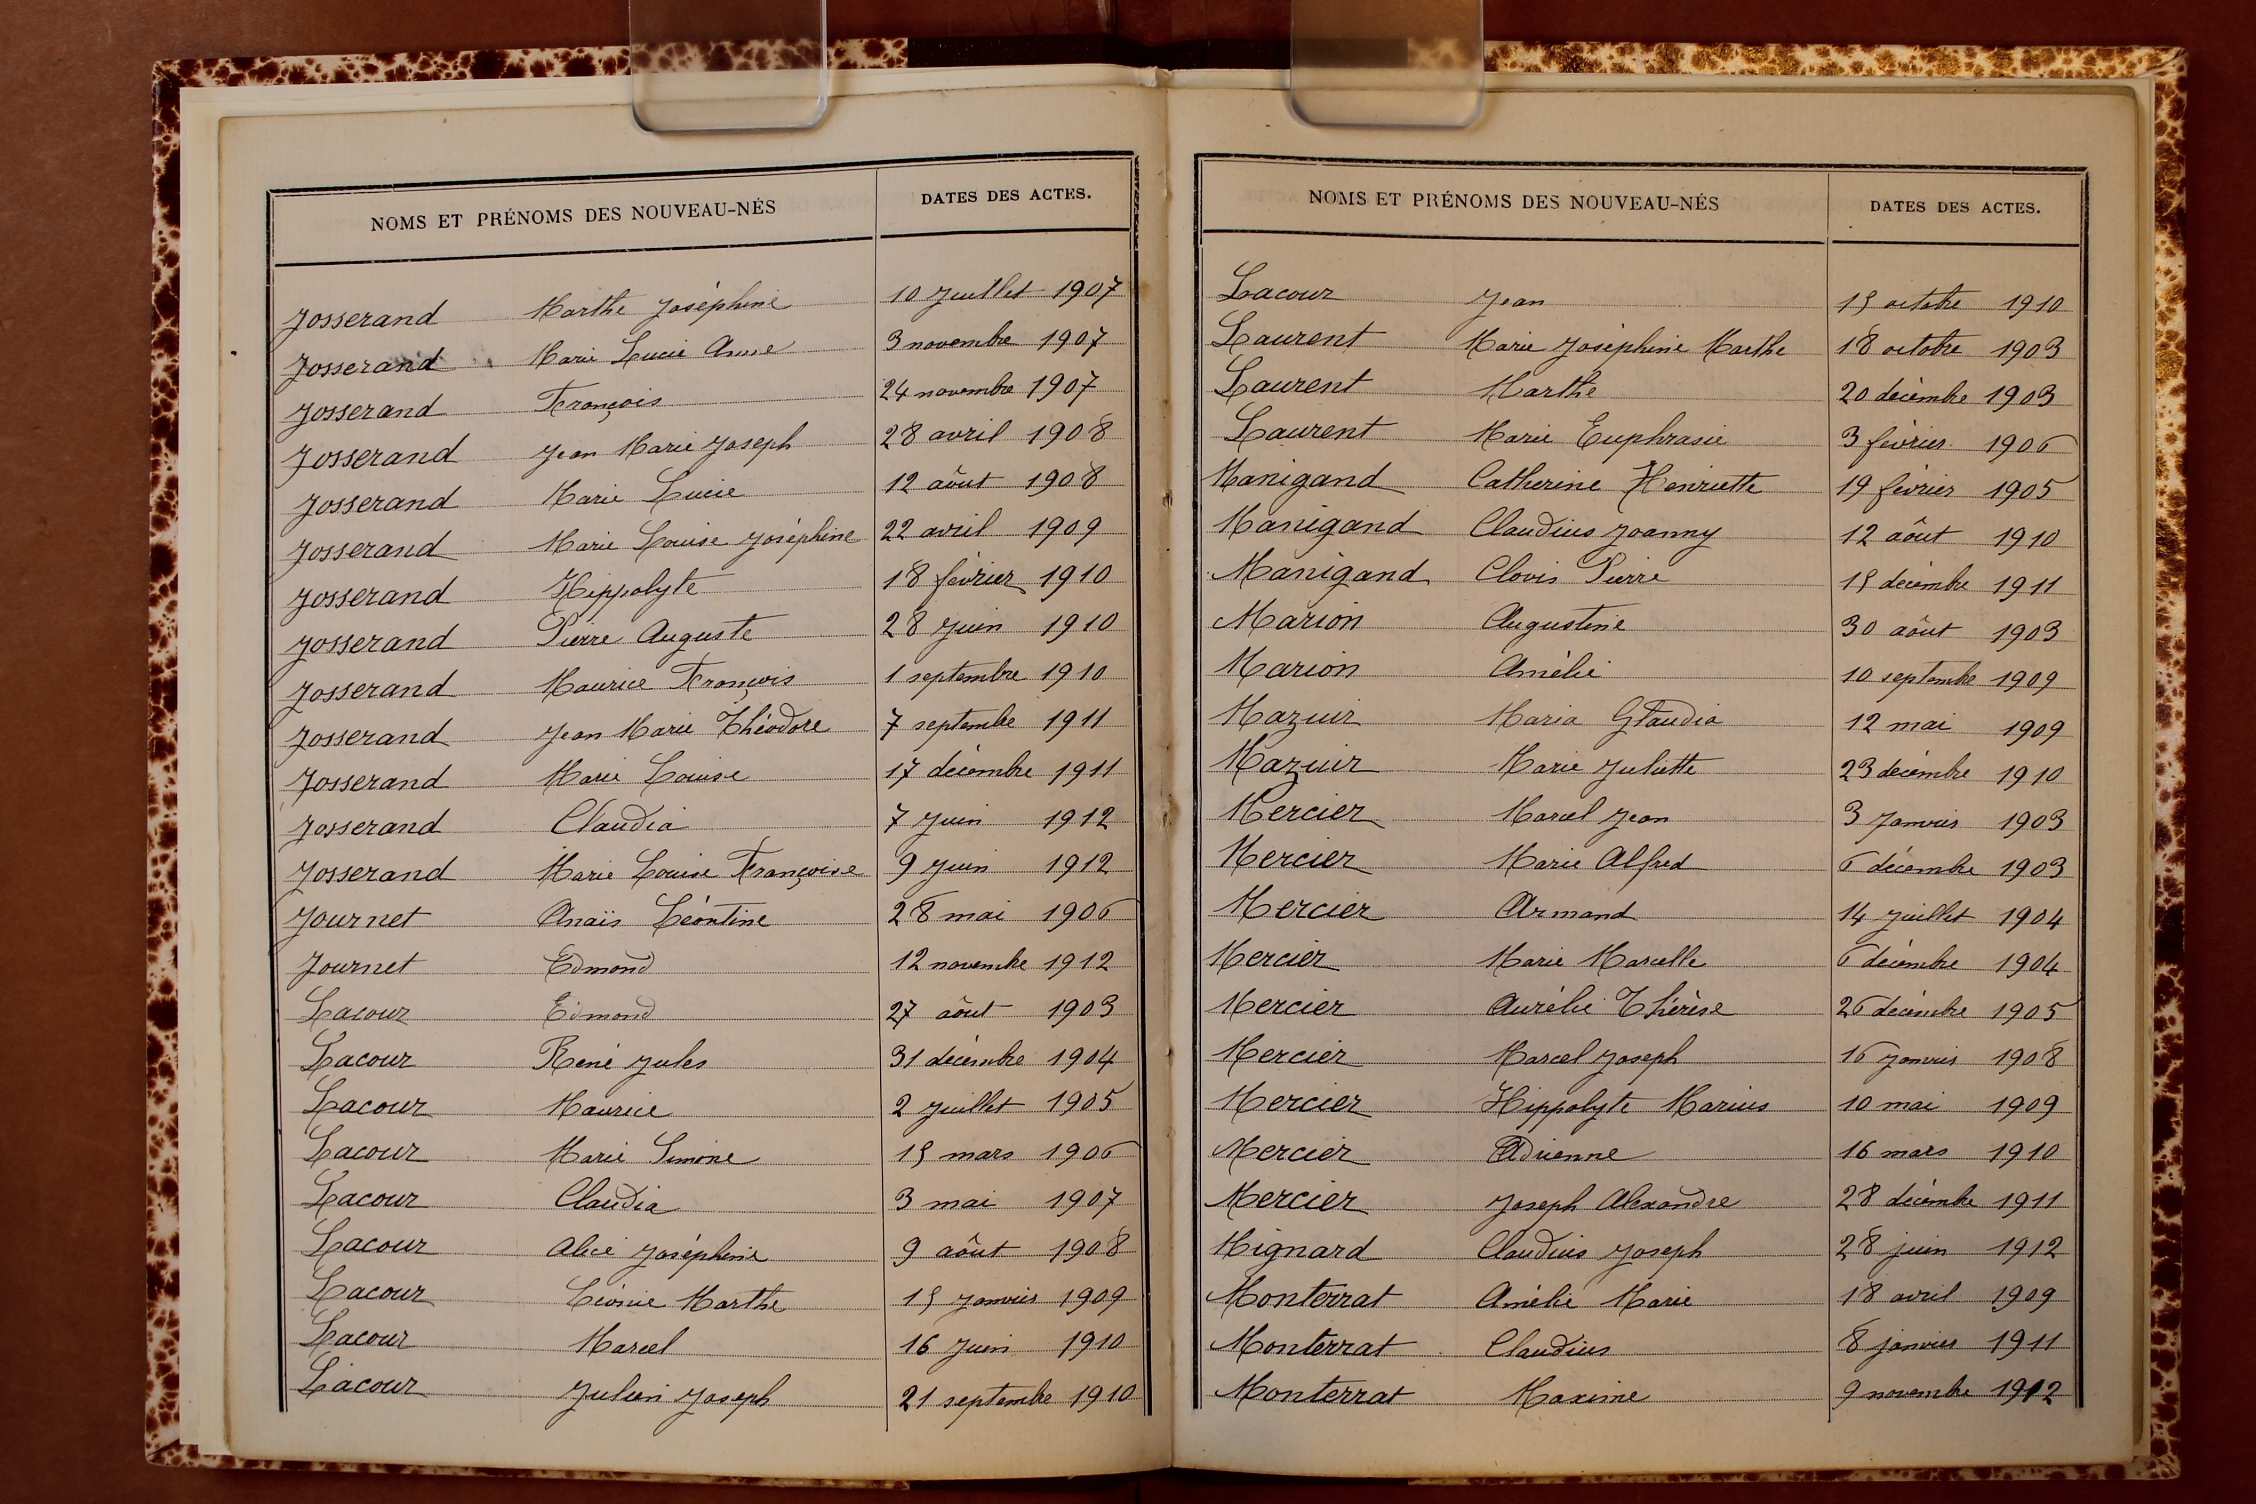 NOMS ET PRÉNOMS DES NOUVEAU-NÉS DATES DES ACTES.
Josserand Marthe Joséphine 10 Juillet 1907
Josserand Marie Lucie Anne 3 novembre 1907
Josserand François 24 novembre 1907
Josserand Jean Marie Joseph 28 avril 1908
Josserand Marie Lucie 12 aôut 1908
Josserand Marie Louise Joséphine 22 avril 1909
Josserand Hippolyte 18 février 1910
Josserand Pierre Auguste 28 Juin 1910
Josserand Maurice François 1 septembre 1910
Josserand Jean Marie Théodore 7 septembre 1911
Josserand Marie Louise 17 décembre 1911
Josserand Claudia 7 Juin 1912
Josserand Marie Louise Françoise 9 Juin 1912
Journet Anaïs Léontine 28 mai 1906
Journet Edmond 12 novembre 1912
Lacour Edmond 27 aôut 1903
Lacour René Jules 31 décembre 1904
Lacour Maurice 2 Juillet 1905
Lacour Marie Simone 15 mars 1906
Lacour Claudia 3 mai 1907
Lacour Alice Joséphine 9 aôut 1908
Lacour Léonie Marthe 15 Janvier 1909
Lacour Marcel 16 Juin 1910
Lacour Julien Joseph 21 septembre 1910
NOMS ET PRÉNOMS DES NOUVEAU-NÉS DATES DES ACTES.
Lacour Jean 15 octobre 1910
Laurent Marie Joséphine Marthe 18 octobre 1903
Laurent Marthe 20 décembre 1903
Laurent Marie Euphrasie 3 février 1906
Manigand Catherine Henriette 19 février 1905
Manigand Claudius Joanny 12 aôut 1910
Manigand Clovis Pierre 15 décembre 1911
Marion Augustine 30 aôut 1903
Marion Amélie 10 septembre 1909
Mazuir Maria Glaudia 12 mai 1909
Mazuir Marie Juliette 23 décembre 1910
Mercier Marcel Jean 3 Janvier 1903
Mercier Marie Alfred 6 décembre 1903
Mercier Armand 14 Juillet 1904
Mercier Marie Marcelle 6 décembre 1904
Mercier Aurélie Thérèse 26 décembre 1905
Mercier Marcel Joseph 16 Janvier 1908
Mercier Hippolyte Marius 10 mai 1909
Mercier Adrienne 16 mars 1910
Mercier Joseph Alexandre 28 décembre 1911
Mignard Claudius Joseph 28 juin 1912
Monterrat Amélie Marie 18 avril 1909
Monterrat Claudius 8 janvier 1911
Monterrat Maxime 9 novembre 1912